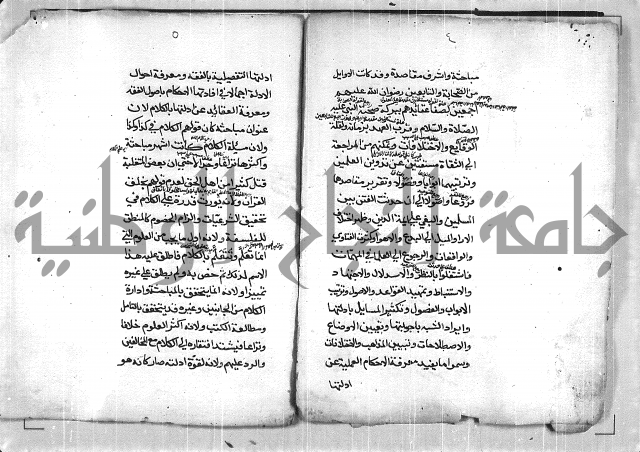 ٤
مباحثه واشرف مقاصده وقد كانت الاوايل
من الصحابة والتابعين رضوان الله عليهم
اجمعين لصفا عقايدهم ببركة صحبة النبي عليه
الصلاة والسلام وقرب العهد بزمانه ولقلة
الوقايع والاختلافات وتمكنهم من المراجعة
الى الثقاة مستغنين عن تدوين العلمين
وترتيبهما ابوابا وفصولا وتقرير مقاصدهما
فروعا واصولا الى ان حدثت الفتن بين
المسلمين والبغي على ائمة الدين وظهر اختلاف
الاراء والميل الى البدع والاهواء وكثرت الفتاوى
والواقعات والرجوع الى العلماء في المهمات
فاشتغلوا بالنظر والاستدلال والاجتهاد
والاستنباط وتمهيد القواعد والاصول وترتيب
الابواب والفصول وتكثير المسايل بادلتها
وايراد الشبه باجوبتها وتعيين الاوضاع
والاصطلاحات وتبيين المذاهب والاختلافات
وسموا ما يفيد معرفة الاحكام العملية عن
ادلتها
٥
ادلتها التفصيلية بالفقه ومعرفة احوال
الادلة اجمالا في افادتها الاحكام باصول الفقه
ومعرفة العقايد عن ادلتها بالكلام لان
عنوان مباحثه كان قولهم الكلام في كذا وكذا
ولان مسئلة الكلام كانت اشهر مباحثه
واكثرها نزاعا وجدالا حتى ان بعض المتغلبة
قتل كثيرا من اهل الحق لعدم قولهم بخلق
القران ولانه يورث قدرة على الكلام في
تحقيق الشرعيات والزام الخصوم كالمنطق
للفلسفة ولانه اول ما يجب من العلوم التي
انما تعلم وتتعلم بالكلام فاطلق عليه هذا
الاسم لذلك ثم خص به ولم يطلق على غيره
تمييزا ولانه انما يتحقق بالمباحثة وادارة
الكلام من الجانبين وغيره قد يتحقق بالتامل
ومطالعة الكتب ولانه اكثر العلوم خلافا
ونزاعا فيشتد افتقاره الى الكلام مع المخالفين
والرد عليهم ولانه لقوة ادلته صار كانه هو
جامعة النجاح الوطنية